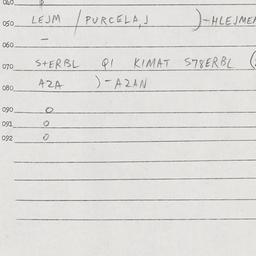 040
050 LEJM / PURCELA,J )-HLEJMEN
060 -
070 S+ERBL QI KIMAT S78ERBL (
080 AZA )-AZAN
090 0
091 0
092 0